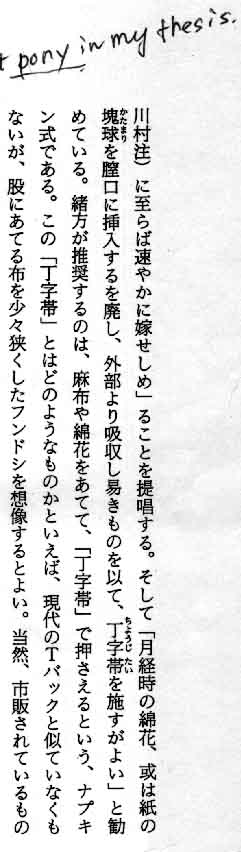 pony in my thesis.
川村注）に至らば速やかに嫁せしめ」ることを提唱する。そして「月経時の綿花、或は紙の
塊球を膣口に挿入するを廃し、外部より吸収し易きものを以て、丁字帯を施すがよい」と勧
かたまり
ちょうじたい
めている。緒方が推奨するのは、麻布や綿花をあてて、「丁字帯」で押さえるという、ナプキ
ン式である。この「丁字帯」とはどのようなものかといえば、現代のTバックと似ていなくも
ないが、股にあてる布を少々狭くしたフンドシを想像するとよい。当然、市販されているもの